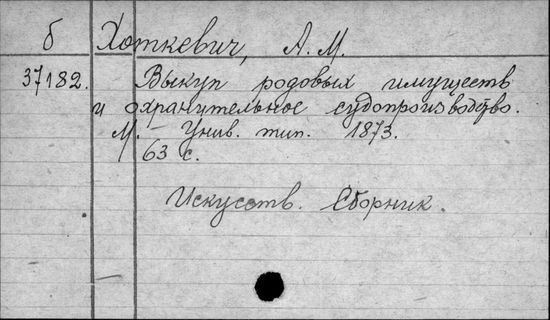 б Хоткевич, А. М.
37182. Выкуп родовых имуществ
и охранительное судопроизводство.
М. Унив. тип. 1873.
63 с.
Искусств. Сборник.